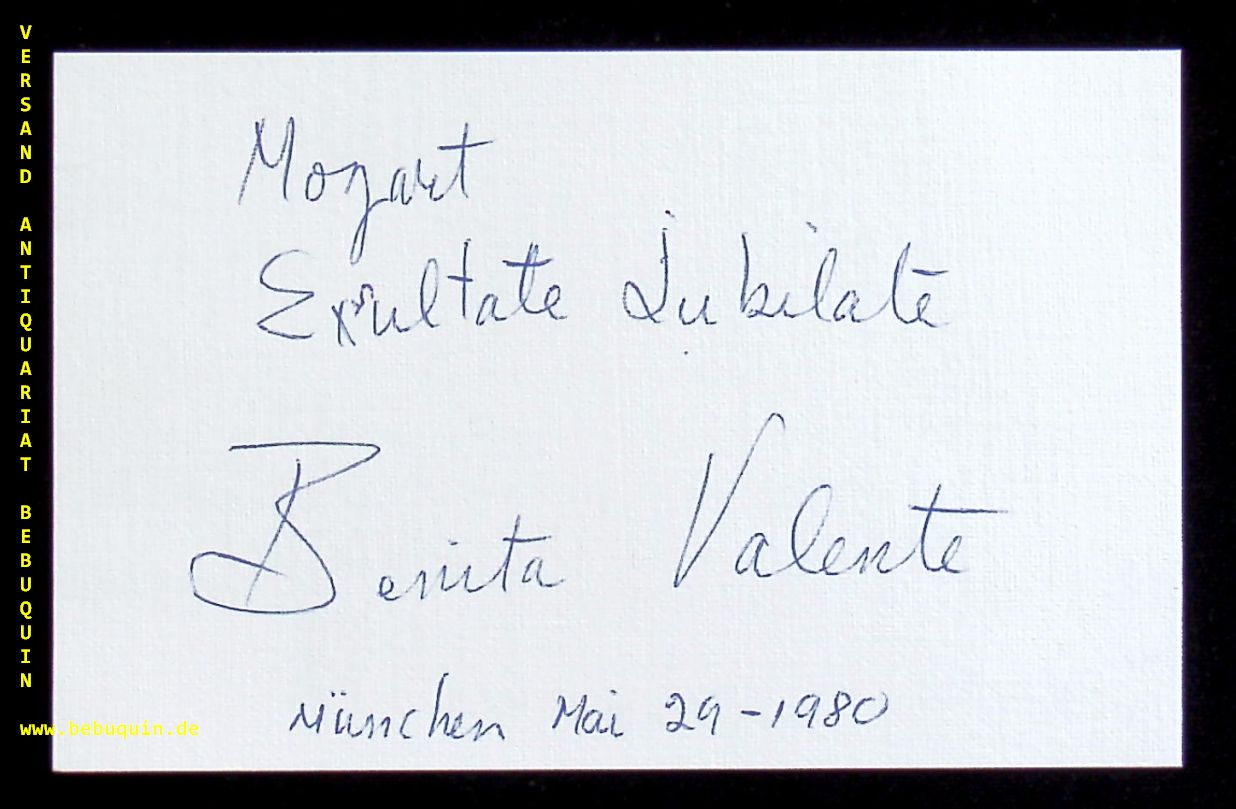 VERSAND ANTIQUARIAT BEBUQUIN
Mozart
Exultate Jubilate
Benita Valente
München Mai 29-1980
www.bebuquin.de